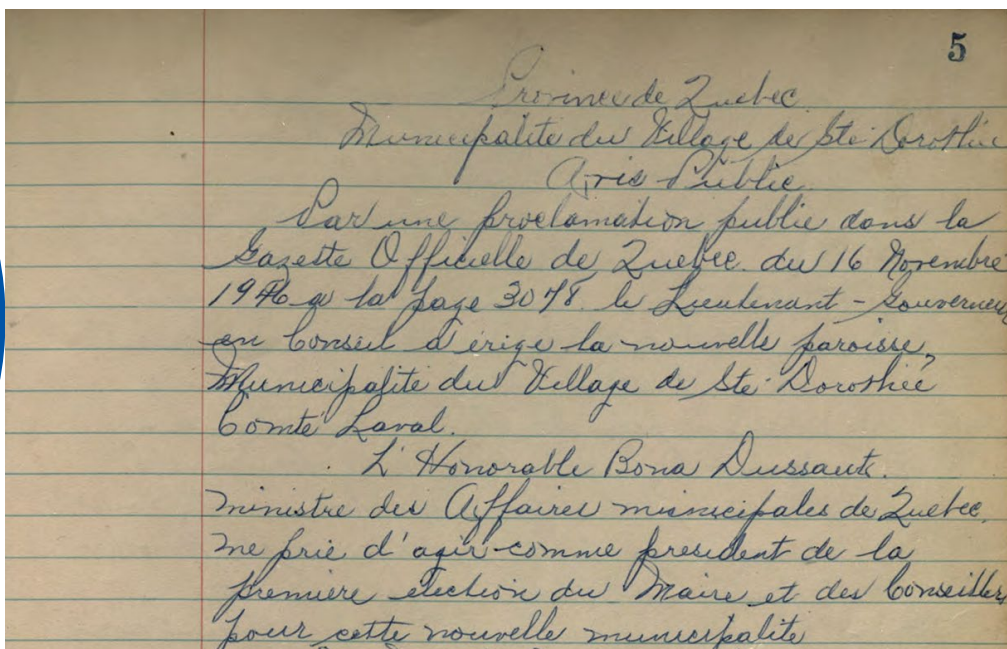 5
Province de Quebec
Municipalite du Village de Ste-Dorothée
Avis Public
Par une proclamation public dans la
Gazette Officielle de Quebec. du 16 Novembre
1946 a la page 3078. le Lieutenant-Gouverneur
en Conseil a érige la nouvelle paroisse,
Municipalité du Village de Ste-Dorothée
Comté Laval.
L'Honorable Bona Dussault.
ministre des Affaires municipales de Quebec.
me prie d'agir comme president de la
premiere election du Maire et des Conseillers
pour cette nouvelle municipalite